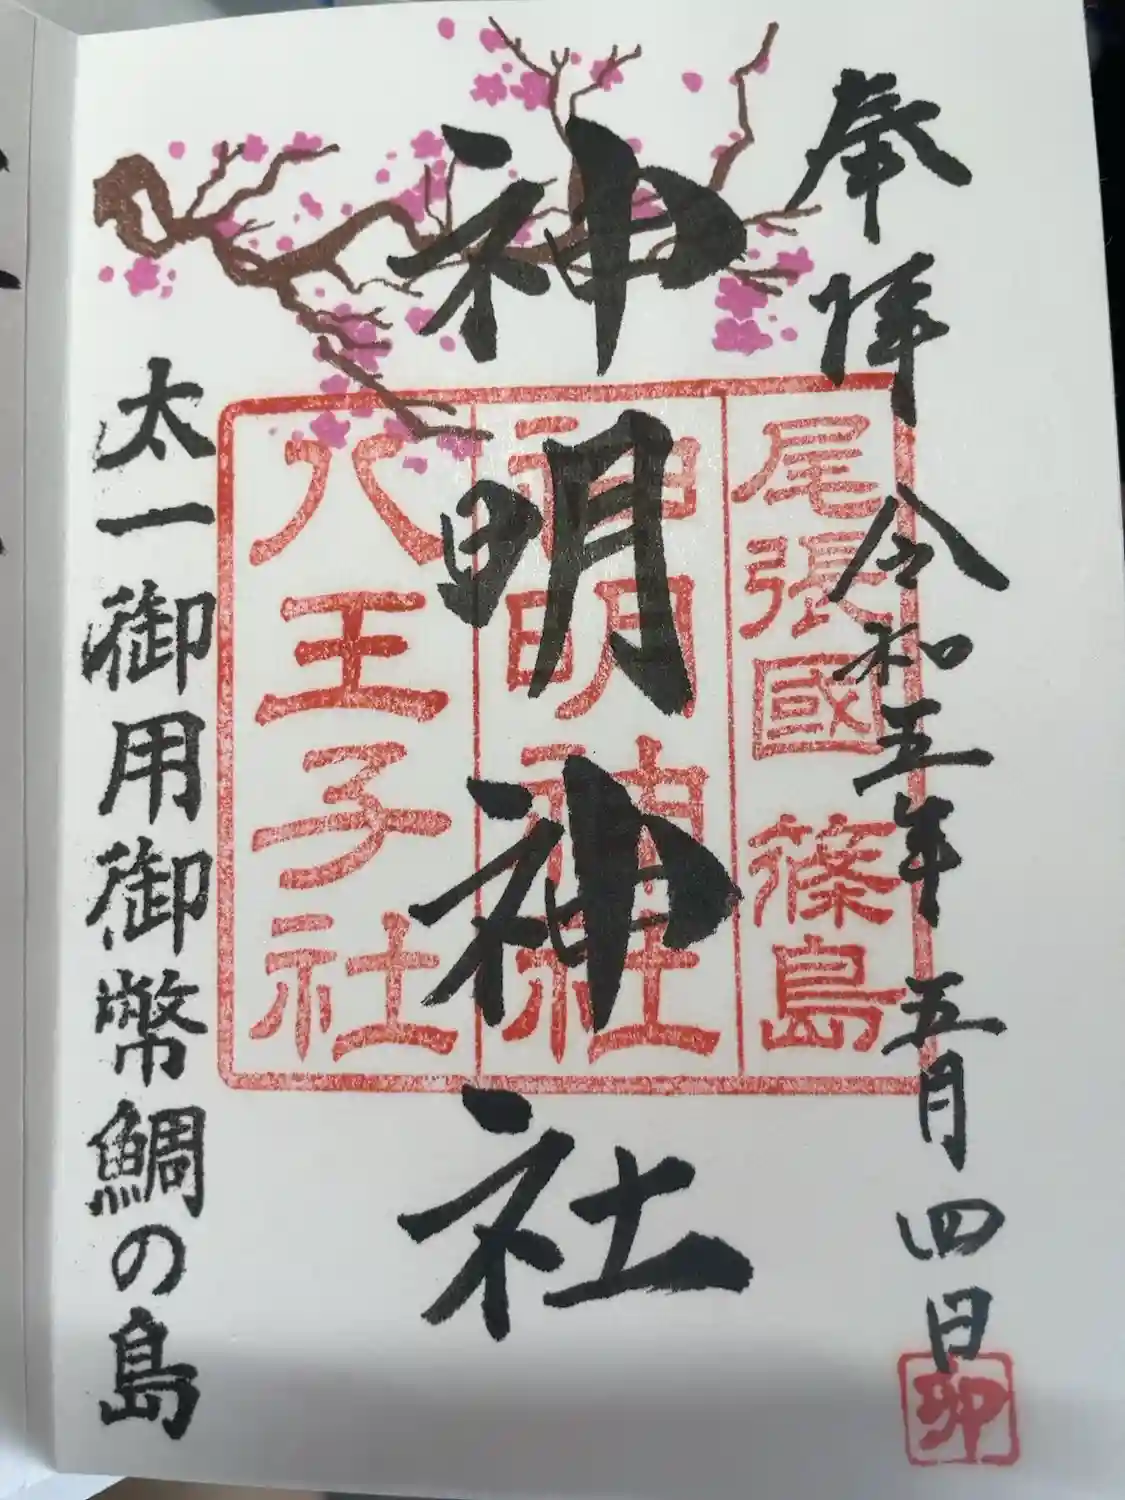 奉拝
令和五年五月四日
卯
神明神社
尾張國 篠島
神明神社
八王子社
太一御用御幣鯛の島